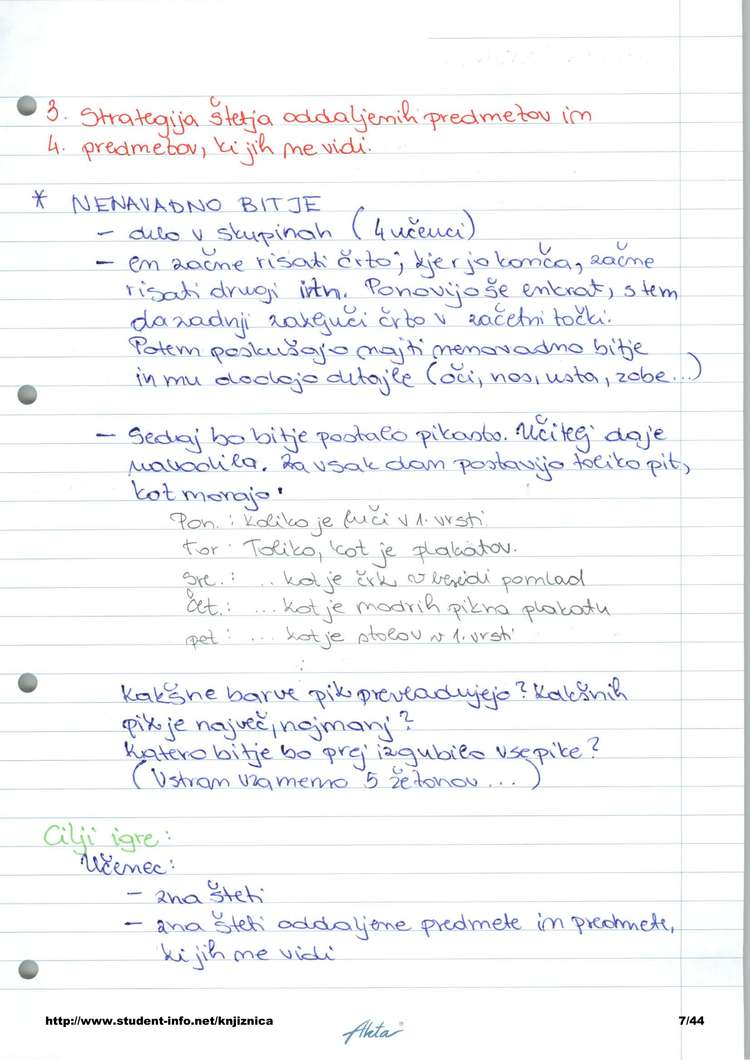 3. Strategija štetja oddaljenih predmetov in
4. predmetov, ki jih ne vidi.
* NENAVADNO BITJE
– delo v skupinah (4 učenci)
– en začne risati črto; kjer jo konča, začne
risati drugi itn. Ponovijo še enkrat, s tem
da zadnji zaključi črto v začetni točki.
Potem poskušajo najti nenavadno bitje
in mu dodajo detajle (oči, nos, usta, zobe...)
– Sedaj bo bitje postalo pikasto. Učitelj daje
navodila. Za vsak dan postavijo toliko pik,
kot morajo:
Pon.: koliko je luči v 1. vrsti
Tor: Toliko, kot je plakatov.
Sre.: .. kot je črk v besedi pomlad
Čet.: ... kot je modrih pik na plakatu
pet: ... kot je stolov v 1. vrsti
:
Kakšne barve pik prevladujejo? Kakšnih
pik je največ, najmanj?
Katero bitje bo prej izgubilo vse pike?
(Vstran vzamemo 5 žetonov...)
Cilji igre:
Učenec:
– zna šteti
– zna šteti oddaljene predmete in predmete,
ki jih ne vidi
http://www.student-info.net/knjiznica
Akta
7/44